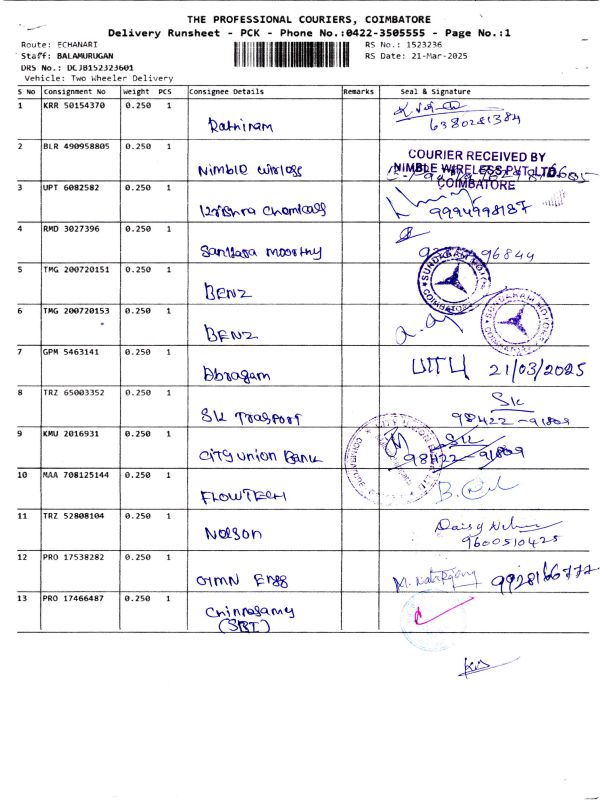 THE PROFESSIONAL COURIERS, COIMBATORE
Delivery Runsheet - PCK - Phone No.:0422-3505555 - Page No.:1
Route: ECHANARI RS No.: 1523236
Staff: BALAMURUGAN RS Date: 21-Mar-2025
DRS No.: DCJB152323601
Vehicle: Two Wheeler Delivery
S No Consignment No Weight PCS Consignee Details Remarks Seal & Signature
1 KRR 50154370 0.250 1
Rathiram 6380281384
2 BLR 490958805 0.250 1
Nimble wirless
COURIER RECEIVED BY
NIMBLE WIRELESS PVT LTD.
COIMBATORE
3 UPT 6082582 0.250 1
Krishna chemicals 9994998187
4 RMD 3027396 0.250 1
Sankara moorthy 96844
5 TMG 200720151 0.250 1
BENZ
SUNDARAM MOTORS
COIMBATORE
6 TMG 200720153 0.250 1
BENZ
SUNDARAM MOTORS
7 GPM 5463141 0.250 1
Dbragam 21/03/2025
8 TRZ 65003352 0.250 1
SK Trasport
SK
98422-91809
9 KMU 2016931 0.250 1
City union Bank
SK
98422-91809
CITY UNION BANK
10 MAA 708125144 0.250 1
FLOWTECH
11 TRZ 52808104 0.250 1
Nelson
Daisy
9600510425
12 PRO 17538282 0.250 1
OTMN Engg 9928166777
13 PRO 17466487 0.250 1
Chinnasamy
(SBI)